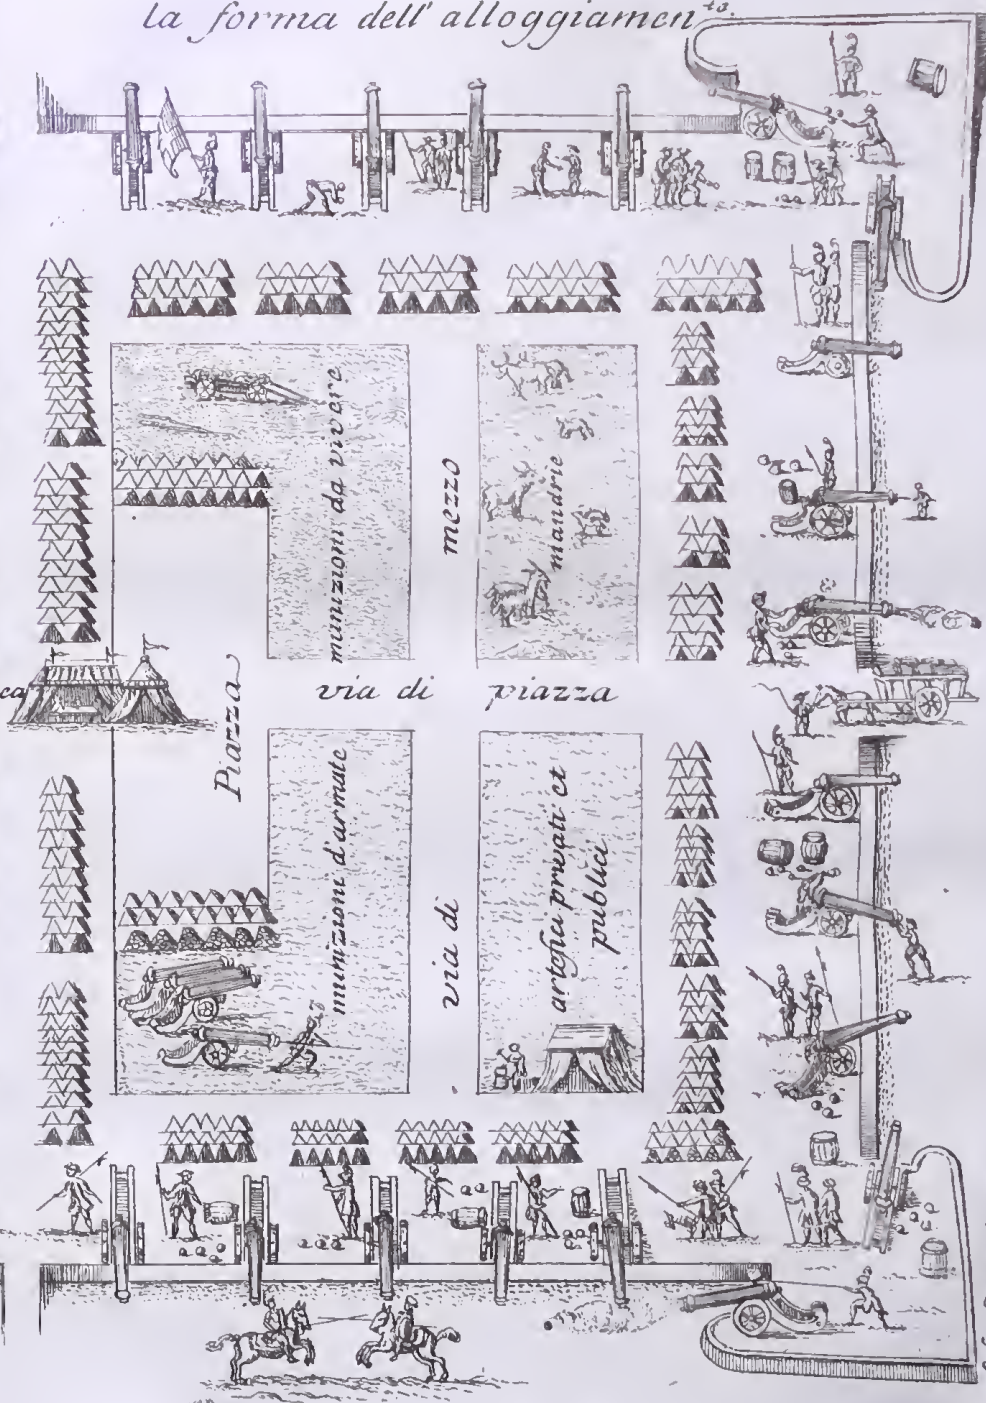 la forma dell' alloggiamen.to
munizioni da vivere
mezzo
mandrie
ca
Piazza
via di piazza
munizioni d'armate
via di
artefici privati et
publici